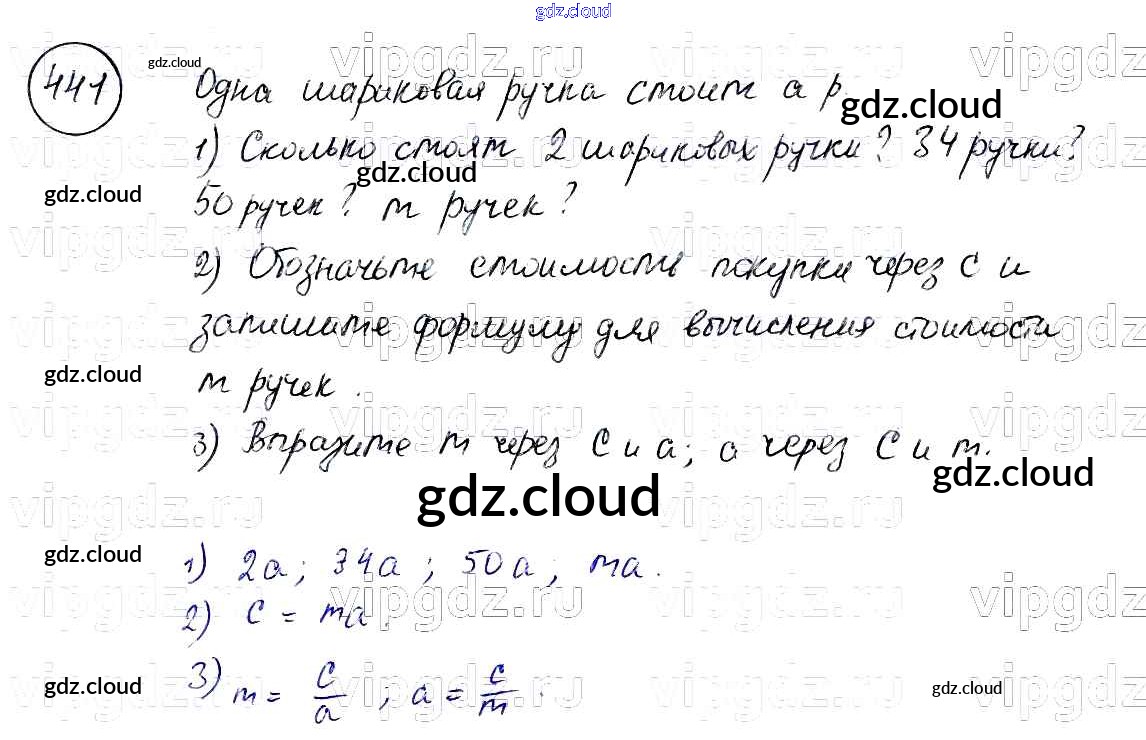 gdz.cloud
441 gdz.cloud
Одна шариковая ручка стоит a р.
gdz.cloud
1) Сколько стоят 2 шариковых ручки? 34 ручки?
gdz.cloud
gdz.cloud
50 ручек? m ручек?
vipgdz.ru
2) Обозначьте стоимость покупки через C и
запишите формулу для вычисления стоимости
gdz.cloud
m ручек.
3) Выразите m через C и a; a через C и m.
gdz.cloud
gdz.cloud
gdz.cloud
1) 2a; 34a; 50a; ma.
2) C = ma.
3) m = C/a ; a = C/m.
gdz.cloud
gdz.cloud